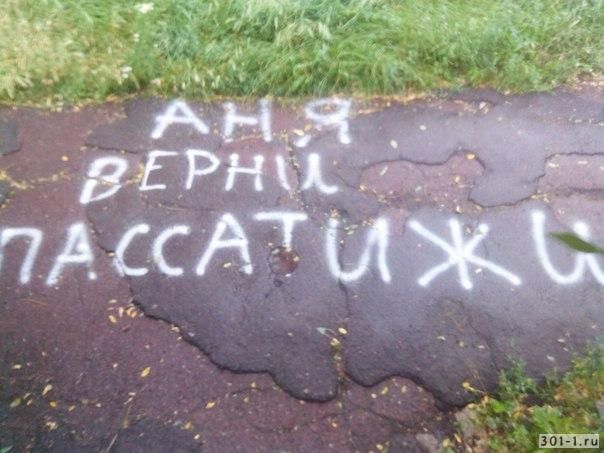 АНЯ
ВЕРНИ
ПАССАТИЖИ
301-1.ru